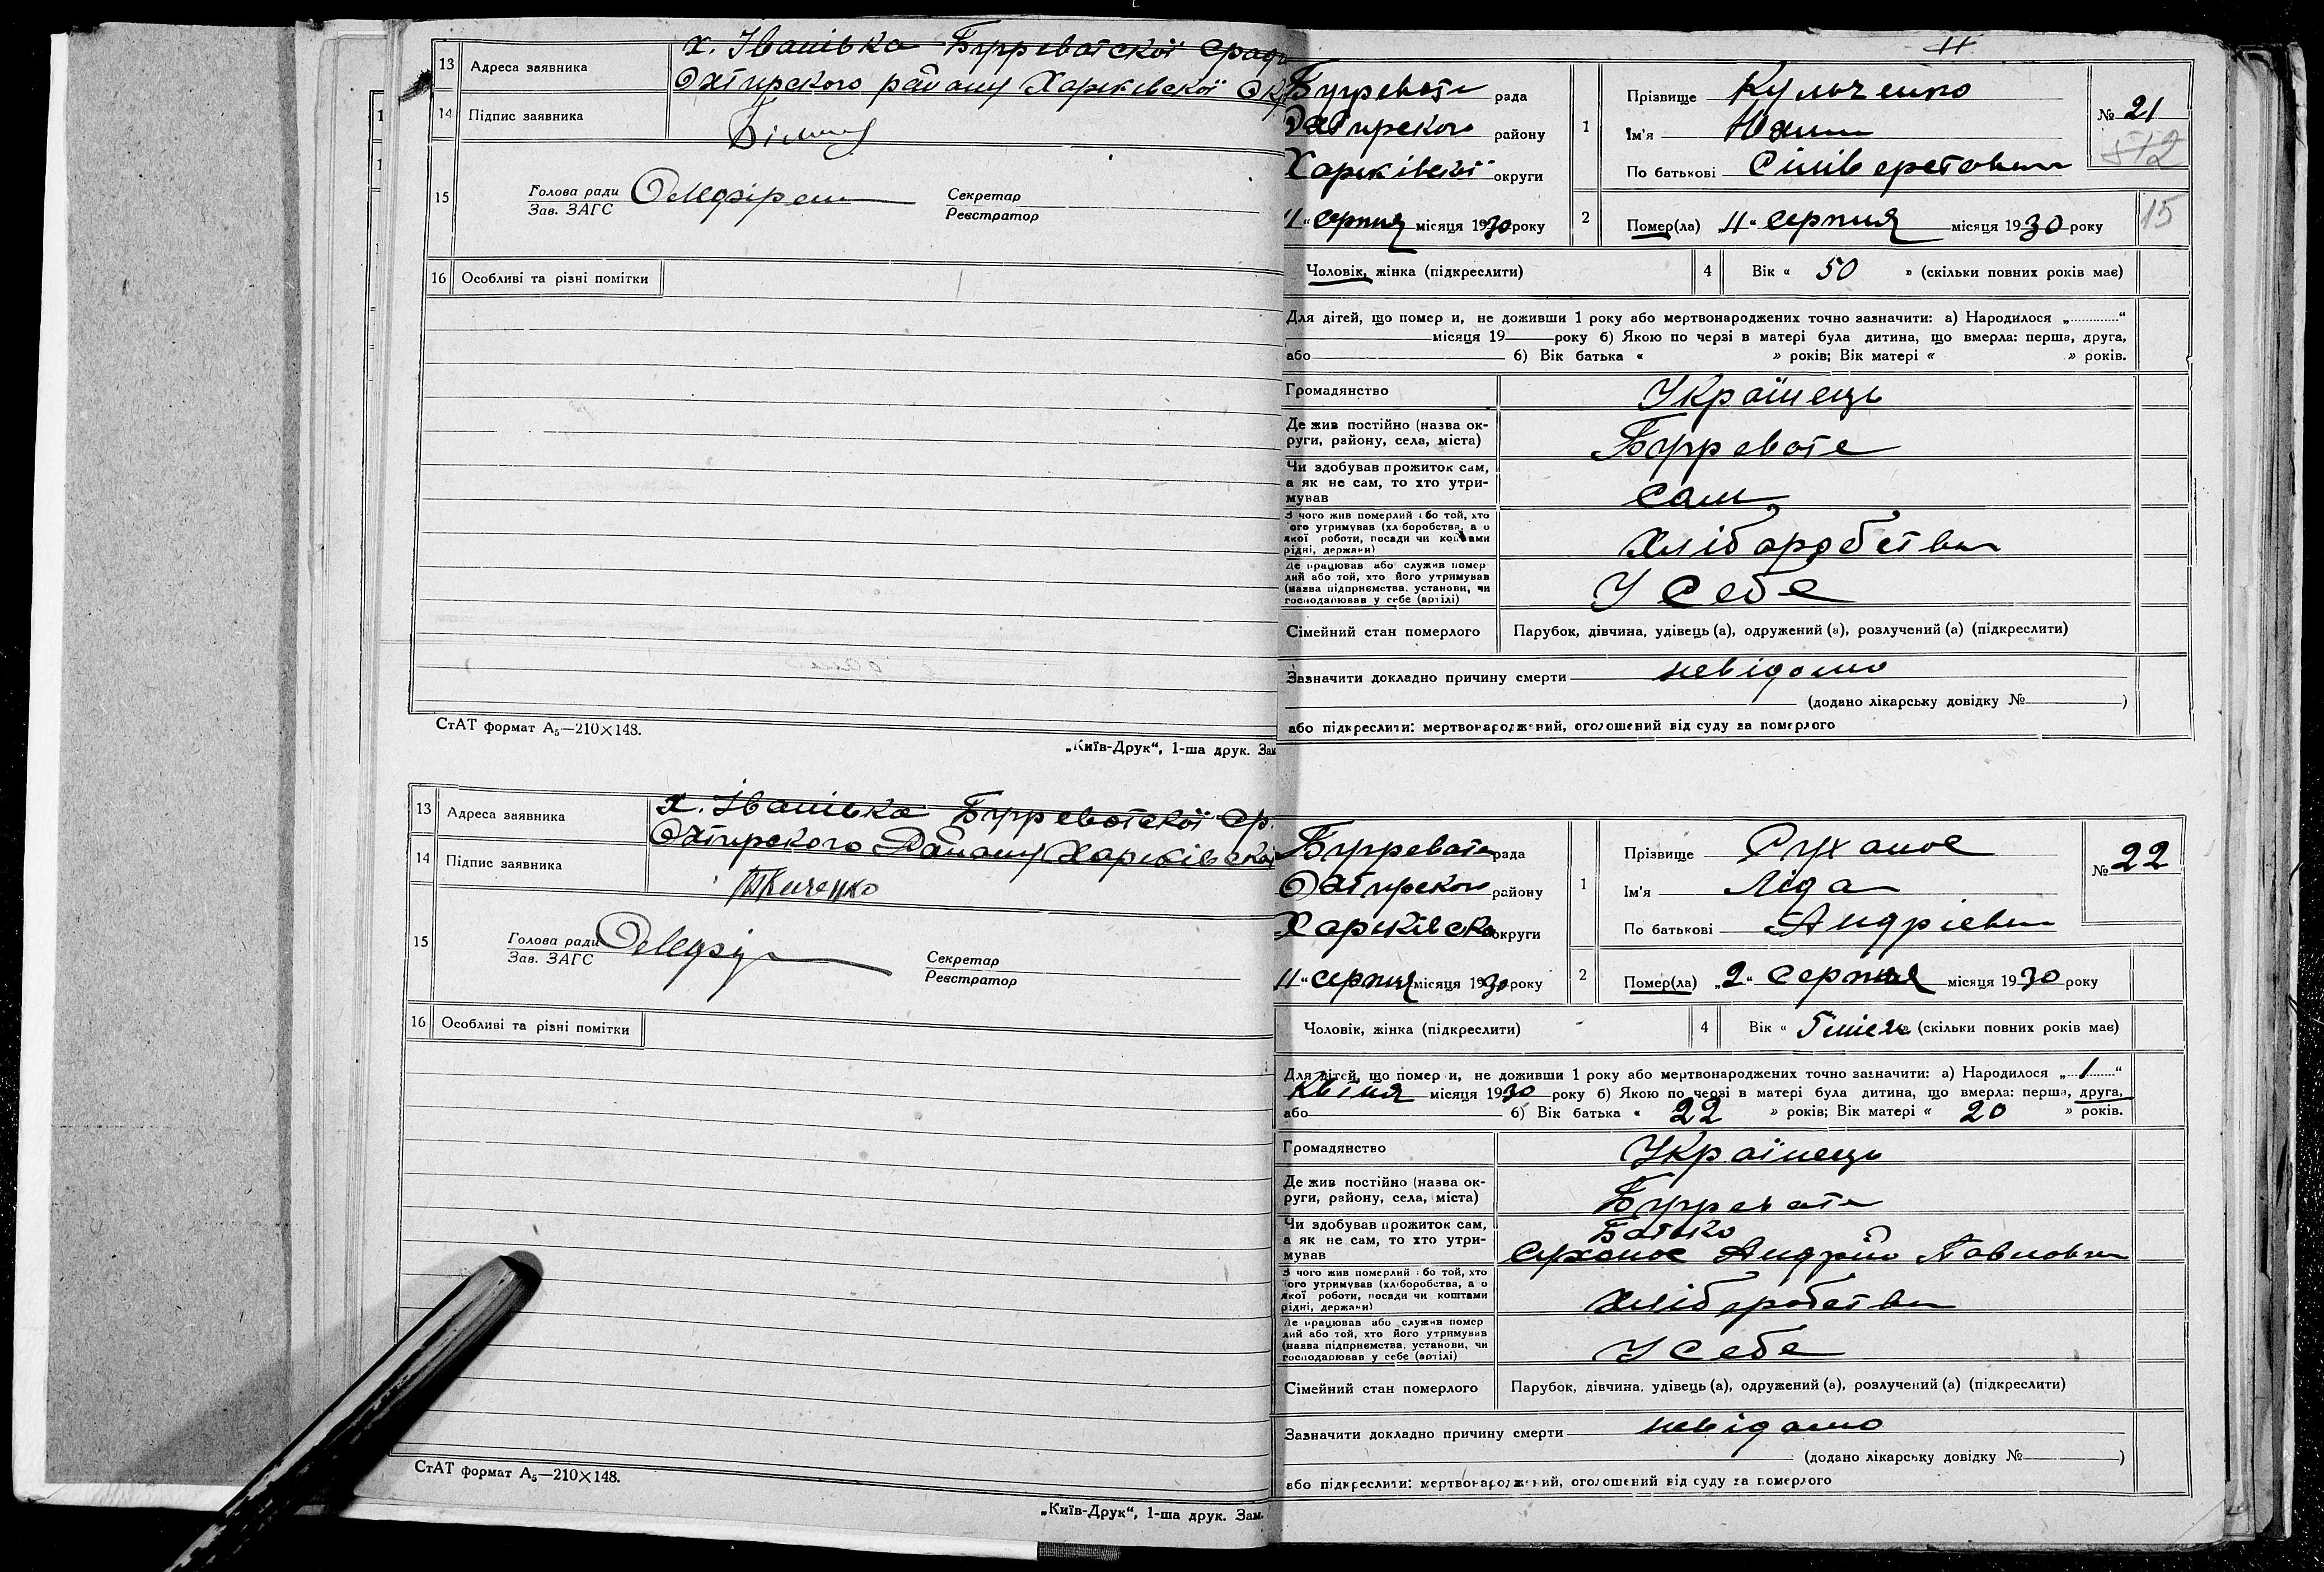 х. Іванівка Бугреватской Сради
13 Адреса заявника
Охтирского району Харківской Ок
14 Підпис заявника
15 Голова ради
Зав. ЗАГС
Секретар
Реєстратор
16 Особливі та різні помітки
СтАТ формат А₅—210×148.
„Київ-Друк“, 1-ша друк. Зам
х. Іванівка Бугреватской Ср.
13 Адреса заявника
Охтирского Району Харківской
14 Підпис заявника
Ткаченко
15 Голова ради
Зав. ЗАГС
Секретар
Реєстратор
16 Особливі та різні помітки
СтАТ формат А₅—210×148.
„Київ-Друк“, 1-ша друк. Зам.
11
Бугревате рада
Охтирского району
Харківської округи
11“ серпня місяця 1930 року
1 Прізвище Кульченко
Ім'я
По батькові Сіліверстович
№ 21
512
2 Помер(ла) „11“ серпня місяця 1930 року
15
Чоловік, жінка (підкреслити)
4 Вік « 50 » (скільки повних років має)
Для дітей, що помер и, не доживши 1 року або мертвонароджених точно зазначити: а) Народилося „............“
місяця 19 року б) Якою по черзі в матері була дитина, що вмерла: перша, друга,
або б) Вік батька « » років; Вік матері « » років.
Громадянство Українець
Де жив постійно (назва ок-
руги, району, села, міста) Бугревате
Чи здобував прожиток сам,
а як не сам, то хто утри-
мував сам
З чого жив померлий або той, хто
його утримував (хліборобства, з
якої роботи, посади чи коштами
рідні, держави) Хліборобства
Де працював або служив помер
лий або той, хто його утримував
(назва підприємства, установи, чи
господарював у себе (артілі) У себе
Сімейний стан померлого Парубок, дівчина, удівець (а), одружений (а), розлучений (а) (підкреслити)
Зазначити докладно причину смерти невідомо
(додано лікарську довідку № )
або підкреслити: мертвонароджений, оголошений від суду за померлого
Бугревате рада
Охтирского району
Харківско округи
11“ серпня місяця 1930 року
1 Прізвище Сухонос
Ім'я Ліда
По батькові Андрієвна
№ 22
2 Помер(ла) „2“ серпня місяця 1930 року
Чоловік, жінка (підкреслити)
4 Вік « » (скільки повних років має)
Для дітей, що помер и, не доживши 1 року або мертвонароджених точно зазначити: а) Народилося „ 1 “
Квітня місяця 1930 року б) Якою по черзі в матері була дитина, що вмерла: перша, друга,
або б) Вік батька « 22 » років; Вік матері « 20 » років.
Громадянство Українець
Де жив постійно (назва ок-
руги, району, села, міста) Бугревате
Чи здобував прожиток сам,
а як не сам, то хто утри-
мував Батько
Сухонос Андрій Павлович
З чого жив померлий або той, хто
його утримував (хліборобства, з
якої роботи, посади чи коштами
рідні, держави) Хліборобства
Де працював або служив помер
лий або той, хто його утримував
(назва підприємства, установи, чи
господарював у себе (артілі) У себе
Сімейний стан померлого Парубок, дівчина, удівець (а), одружений (а), розлучений (а) (підкреслити)
Зазначити докладно причину смерти невідомо
(додано лікарську довідку № )
або підкреслити: мертвонароджений, оголошений від суду за померлого